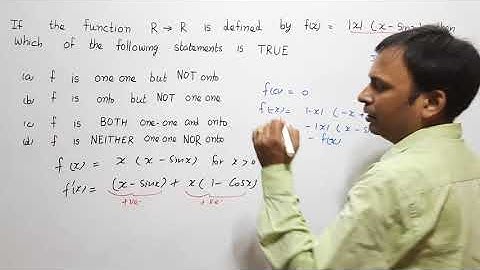 If the function R → R is defined by f(x) = |x| (x - sinx) then
which of the following statements is TRUE
(a) f is one one but NOT onto
(b) f is onto but NOT one one
(c) f is BOTH one-one and onto
(d) f is NEITHER one one NOR onto
f(x) = x (x - sinx) for x > 0
f'(x) = (x - sinx) + x (1 - cosx)
+ve +ve
f(0) = 0
f(-x) = |-x| (-x +
- |x| (x - s
- f(x)